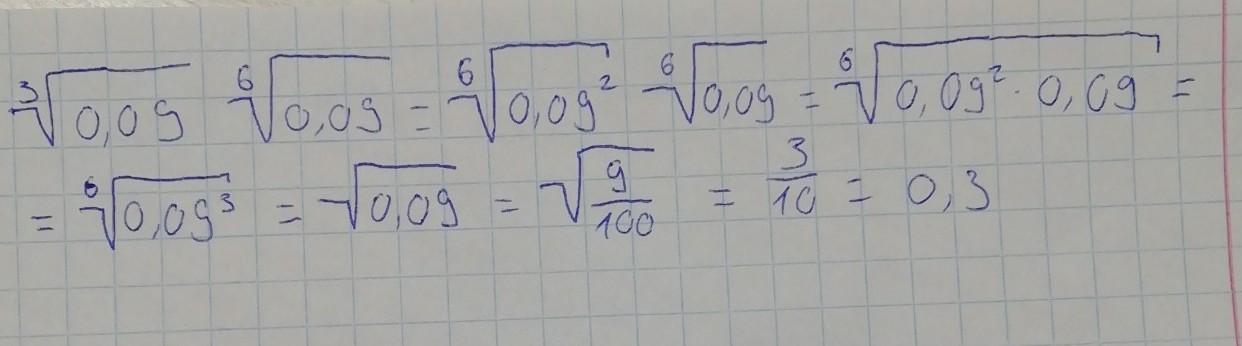 ∛0,09 ⁶√0,09 = ⁶√0,09² ⁶√0,09 = ⁶√0,09² · 0,09 =
= ⁶√0,09³ = √0,09 = √9/100 = 3/10 = 0,3